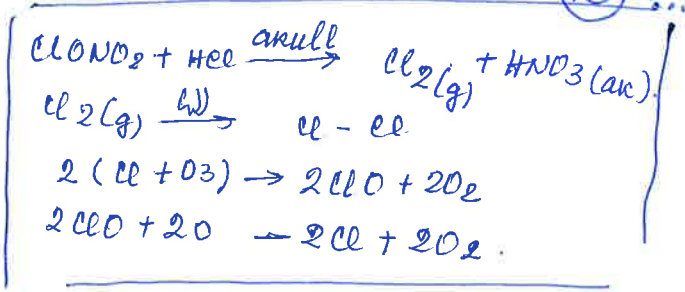 ClONO2 + HCl akull → Cl2(g) + HNO3(ак).
Cl2(g) → Cl - Cl
2(Cl + O3) → 2ClO + 2O2
2ClO + 2O → 2Cl + 2O2.